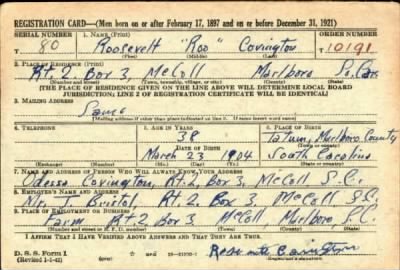 REGISTRATION CARD—(Men born on or after February 17, 1897 and on or before December 31, 1921)
SERIAL NUMBER 1. NAME (Print) ORDER NUMBER
T 80 Roosevelt "Roo" Covington T 10191
(First) (Middle) (Last)
2. PLACE OF RESIDENCE (Print)
Rt. 2 Box 3, McColl Marlboro So. Car.
(Number and street) (Town, township, village, or city) (County) (State)
[THE PLACE OF RESIDENCE GIVEN ON THE LINE ABOVE WILL DETERMINE LOCAL BOARD
JURISDICTION; LINE 2 OF REGISTRATION CERTIFICATE WILL BE IDENTICAL]
3. MAILING ADDRESS
Same
[Mailing address if other than place indicated on line 2. If same insert word same]
4. TELEPHONE 5. AGE IN YEARS 6. PLACE OF BIRTH
38 Tatum, Marlboro County
DATE OF BIRTH (Town or county)
March 23 1904 South Carolina
(Exchange) (Number) (Mo.) (Day) (Yr.) (State or country)
7. NAME AND ADDRESS OF PERSON WHO WILL ALWAYS KNOW YOUR ADDRESS
Odessa Covington, Rt. 2, Box 3, McColl S.C.
8. EMPLOYER'S NAME AND ADDRESS
Mr. T. Bristol, Rt. 2 Box 3, McColl S.C.
9. PLACE OF EMPLOYMENT OR BUSINESS
Farm Rt. 2 Box 3, McColl, Marlboro, S.C.
(Number and street or R. F. D. number) (Town) (County) (State)
I AFFIRM THAT I HAVE VERIFIED ABOVE ANSWERS AND THAT THEY ARE TRUE.
D. S. S. Form 1
(Revised 1-1-42) (over) Covington